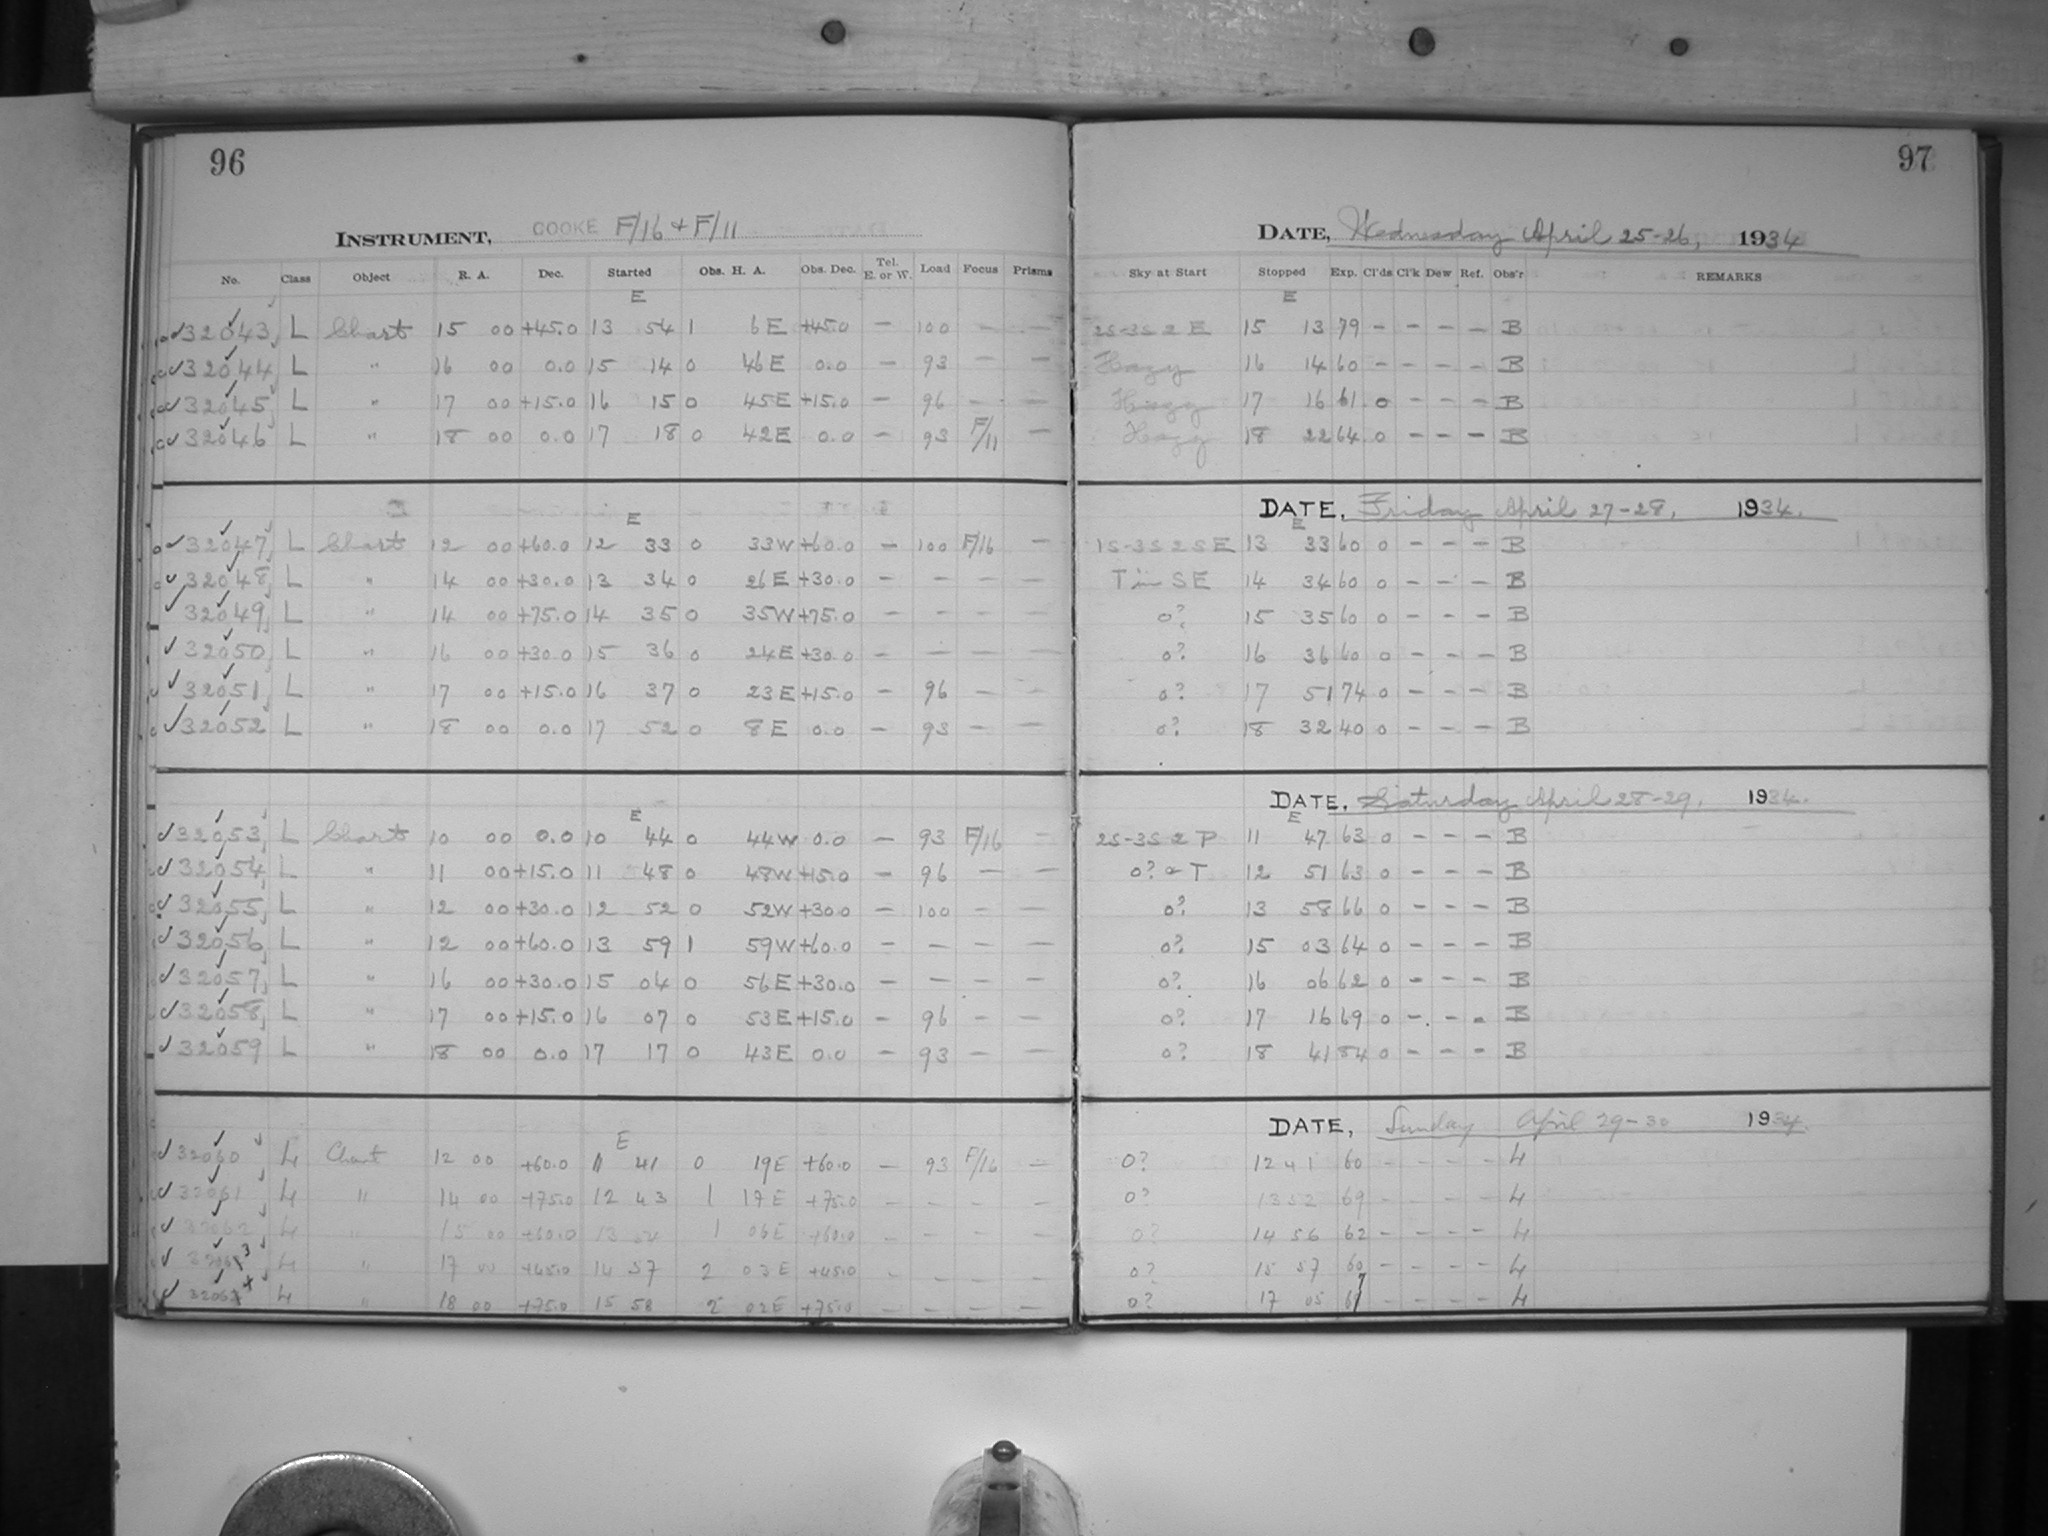 96
INSTRUMENT, COOKE F/16 + F/11
No. Class Object R. A. Dec. Started Obs. H. A. Obs. Dec. Tel. E. or W. Load Focus Prisms
E
32043 L Chart 15 00 +45.0 13 54 1 6E +45.0 – 100 – –
32044 L " 16 00 0.0 15 14 0 46E 0.0 – 93 – –
32045 L " 17 00 +15.0 16 15 0 45E +15.0 – 96 – –
32046 L " 18 00 0.0 17 18 0 42E 0.0 – 93 F/11 –
E
32047 L Chart 12 00 +60.0 12 33 0 33W +60.0 – 100 F/16 –
32048 L " 14 00 +30.0 13 34 0 26E +30.0 – – – –
32049 L " 14 00 +75.0 14 35 0 35W +75.0 – – – –
32050 L " 16 00 +30.0 15 36 0 24E +30.0 – – – –
32051 L " 17 00 +15.0 16 37 0 23E +15.0 – 96 – –
32052 L " 18 00 0.0 17 52 0 8E 0.0 – 93 – –
E
32053 L Chart 10 00 0.0 10 44 0 44W 0.0 – 93 F/16 –
32054 L " 11 00 +15.0 11 48 0 48W +15.0 – 96 – –
32055 L " 12 00 +30.0 12 52 0 52W +30.0 – 100 – –
32056 L " 12 00 +60.0 13 59 1 59W +60.0 – – – –
32057 L " 16 00 +30.0 15 04 0 56E +30.0 – – – –
32058 L " 17 00 +15.0 16 07 0 53E +15.0 – 96 – –
32059 L " 18 00 0.0 17 17 0 43E 0.0 – 93 – –
E
32060 L Chart 12 00 +60.0 11 41 0 19E +60.0 – 93 F/16 –
32061 L " 14 00 +75.0 12 43 1 17E +75.0 – – – –
32062 L " 15 00 +60.0 13 54 1 06E +60.0 – – – –
32063 L " 17 00 +45.0 14 57 2 03E +45.0 – – – –
32064 L " 18 00 +75.0 15 58 2 02E +75.0 – – – –
97
DATE, Wednesday April 25-26, 1934
Sky at Start Stopped Exp. Cl'ds Cl'k Dew Ref. Obs'r REMARKS
E
2S-3S 2 E 15 13 79 – – – – B
Hazy 16 14 60 – – – – B
Hazy 17 16 61 0 – – – B
Hazy 18 22 64 0 – – – B
DATE, Friday April 27-28, 1934.
E
1S-3S 2 S E 13 33 60 0 – – – B
T in SE 14 34 60 0 – – – B
0? 15 35 60 0 – – – B
0? 16 36 60 0 – – – B
0? 17 51 74 0 – – – B
0? 18 32 40 0 – – – B
DATE, Saturday April 28-29, 1934.
E
2S-3S 2 P 11 47 63 0 – – – B
0? T 12 51 63 0 – – – B
0? 13 58 66 0 – – – B
0? 15 03 64 0 – – – B
0? 16 06 62 0 – – – B
0? 17 16 69 0 – – – B
0? 18 41 84 0 – – – B
DATE, Sunday April 29-30 1934.
0? 12 41 60 – – – – L
0? 13 52 69 – – – – L
0? 14 56 62 – – – – L
0? 15 57 60 – – – – L
0? 17 05 67 – – – – L